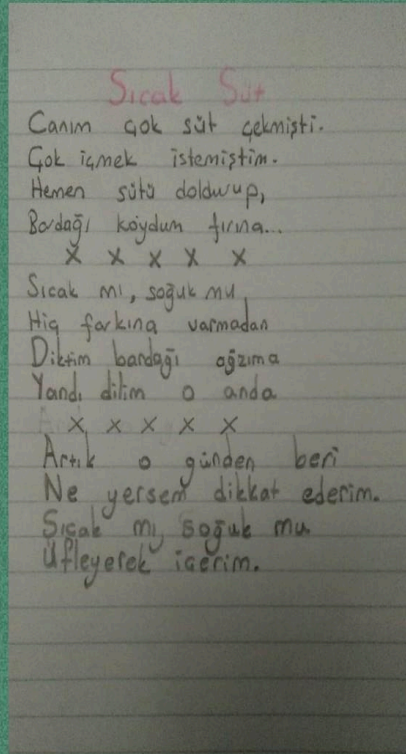 Sıcak Süt
Canım çok süt çekmişti.
Çok içmek istemiştim.
Hemen sütü doldurup,
Bardağı koydum fırına...
X X X X X
Sıcak mı, soğuk mu
Hiç farkına varmadan
Diktim bardağı ağzıma
Yandı dilim o anda
X X X X X
Artık o günden beri
Ne yersem dikkat ederim.
Sıcak mı, soğuk mu
Üfleyerek içerim.